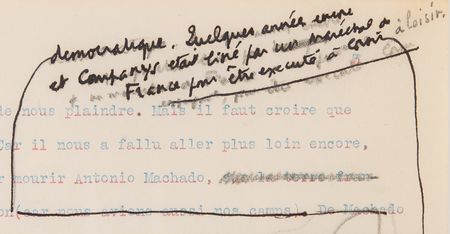 démocratique. Quelques année encore
et Companys était livré par un maréchal de à loisir.
France pour être executé à loisir
de nous plaindre. Mais il faut croire que
Car il nous a fallu aller plus loin encore,
r mourir Antonio Machado, sur la terre fran-
on(car nous avions aussi nos camps). De Machado